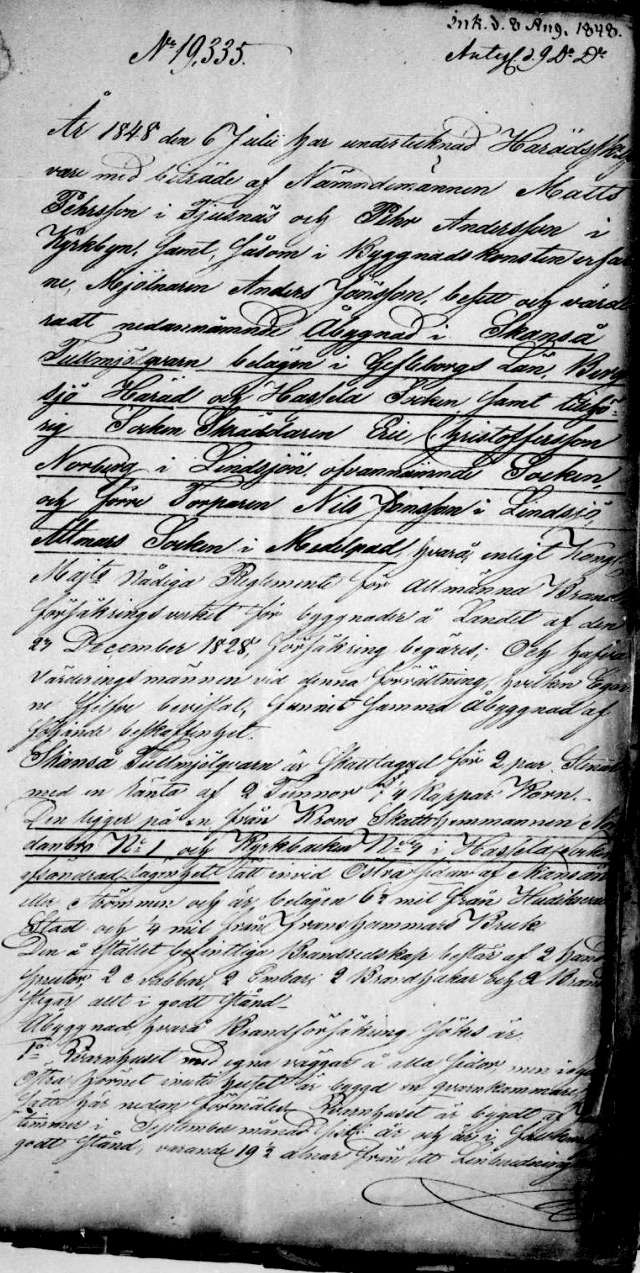 Ink. d. 8 Aug. 1848.
No 19,335.
År 1848 den 6 Julii har undertecknad Härads
vare med biträde af Nämndemännen Matts
Pehrsson i Fjusnäs och Pehr Andersson i
Kyrkbyn, samt, såsom i Byggnadskonsten erfar
ne, Mjölnaren Anders Jönsson, besett och värde
radt nedannämnde Åbyggnad i Skanså
Tullmjölqvarn belägen i Gefleborgs Län, Berg
sjö Härad och Hassela Socken samt tillhö-
rig Socken Skräddaren Eric Christoffersson
Norberg i Lindsjön, ofvannämnde Socken
och förre Torparen Nils Jonsson i Lindsjö,
Attmars Socken i Medelpad, hvarå, enligt Kongl.
Majts Nådiga Reglemente för Allmänna Brand
försäkringsverket för byggnader å Landet af den
23 December 1828, försäkring begäres; Och hafva
Värderingsmännen vid denna förrättning, hvilken Egar
ne sjelfve bevistat, funnit samma Åbyggnad af
följande beskaffenhet.
Skanså Tullmjölqvarn är skattlagd för 2 par Stenar
med en ränta af 2 Tunnor 4 Kappar Korn.
Den ligger på en från Krono Skattehemmanen
dambro No 1 och Kyrkbacken No 4 i Hassela socken
afsöndrad lägenhet tätt invid Östra sidan af Skansån
eller Strömmen och är belägen 6½ mil från Hudiksvall
Stad och ¼ mil från Franshammars Bruk
Den å stället befintliga Brandredskap består af 2 hand
sprutor, 2 Svabbar, 2 Embar; 2 Brandhakar och 2 Brand
stegar allt i godt stånd.
Åbyggnad hvarå Brandförsäkring sökes är
1o Qvarnhuset med egna väggar å alla sidor, men i
östra hörnet inuti huset är byggd en qvarnkammare
här nedan förmäles. Qvarnhuset är bygdt af
timmer i September månad är och är i
godt stånd, varande 19½ alnar från ett